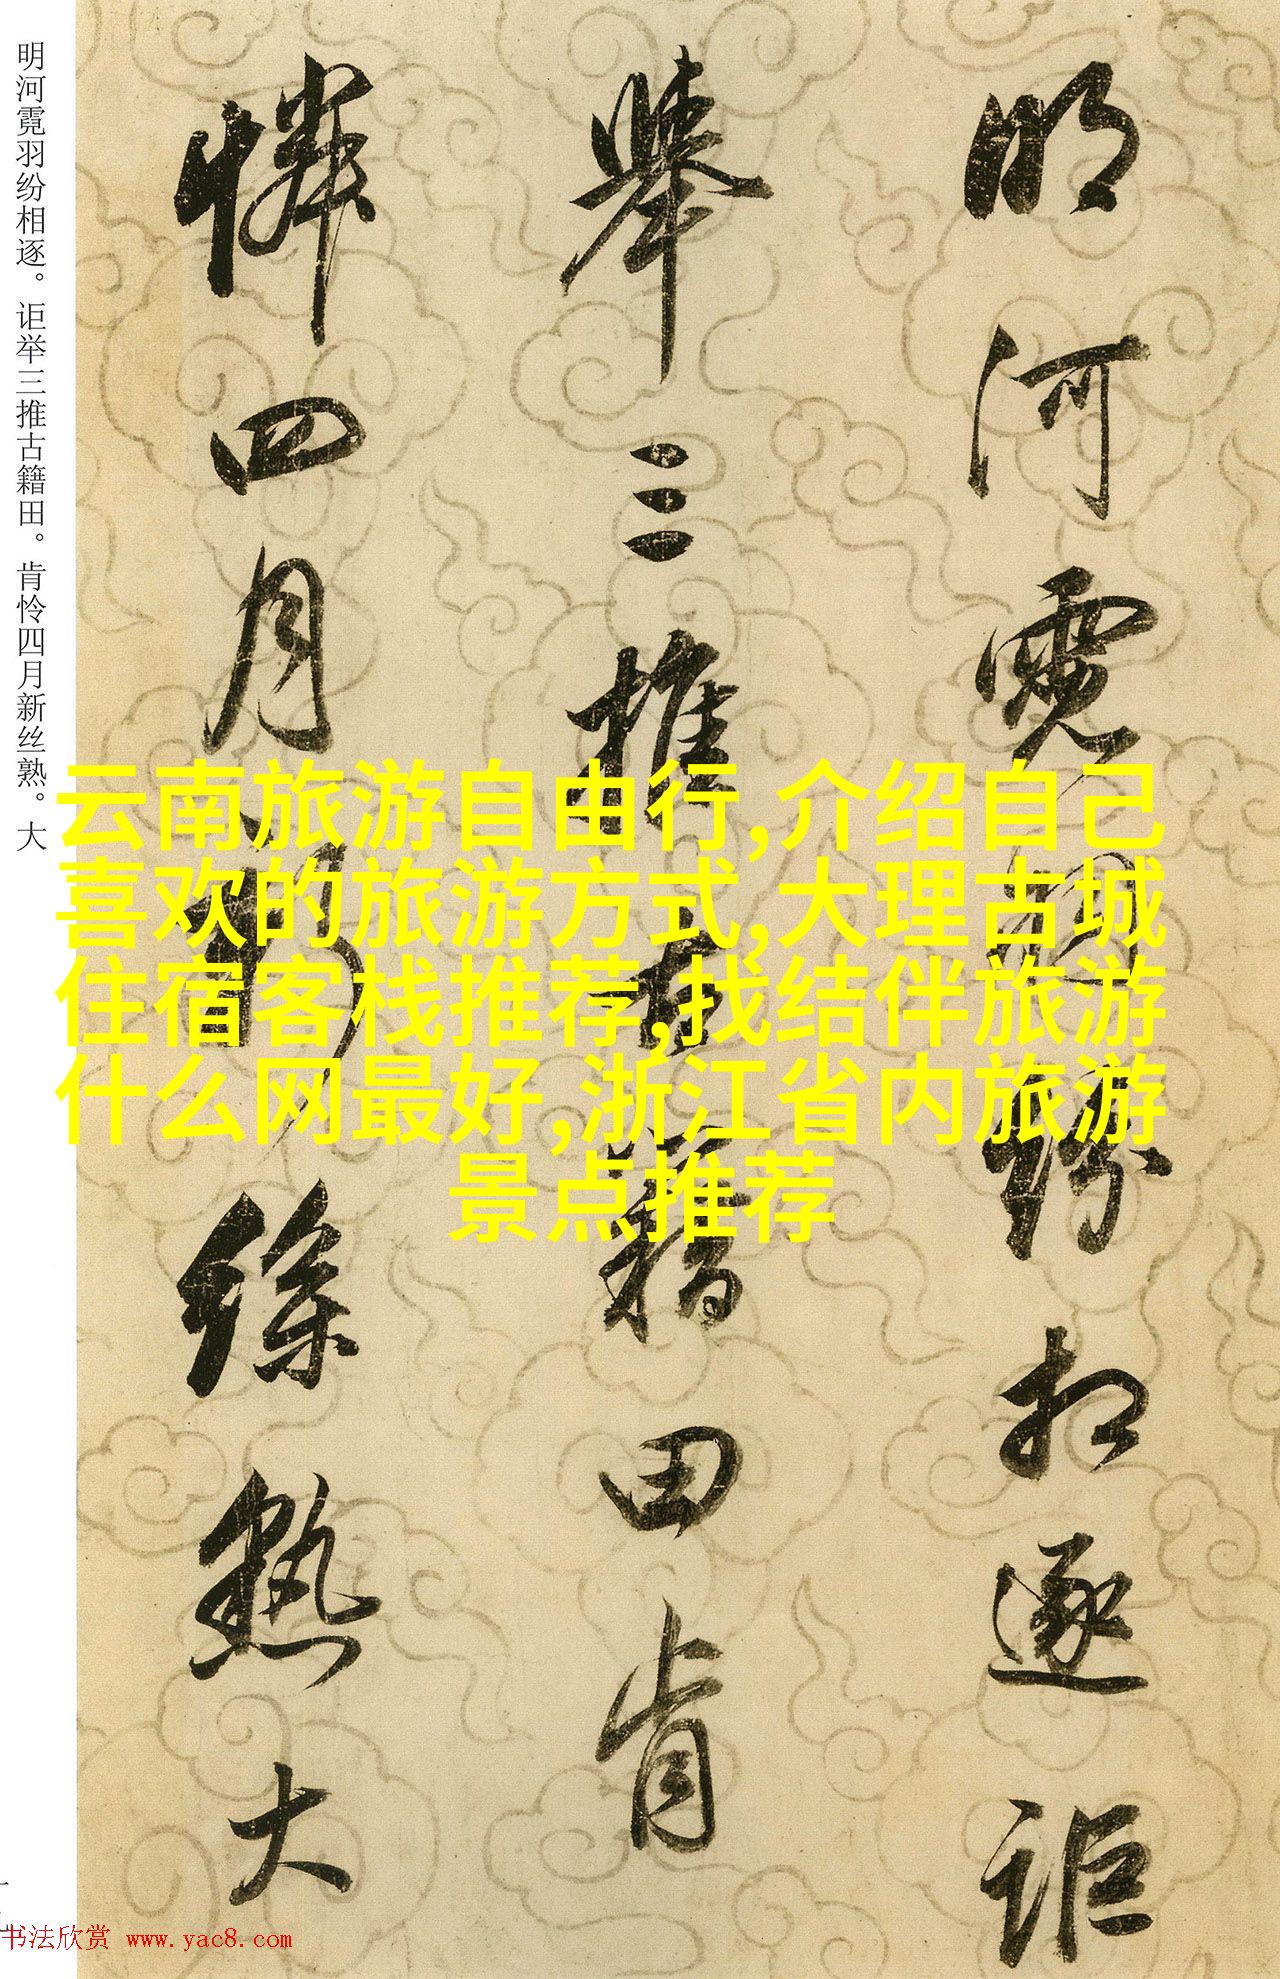 明河霓羽纷相逐。讵举三推古籍田。肯怜四月新丝熟。大
明河霓羽紛相逐詎
舉三推古籍田肯
憐四月新絲熟大
云南旅游自由行,介绍自己
喜欢的旅游方式,大理古城
住宿客栈推荐,找结伴旅游
什么网最好,浙江省内旅游
景点推荐
书法欣赏 www.yac8.com